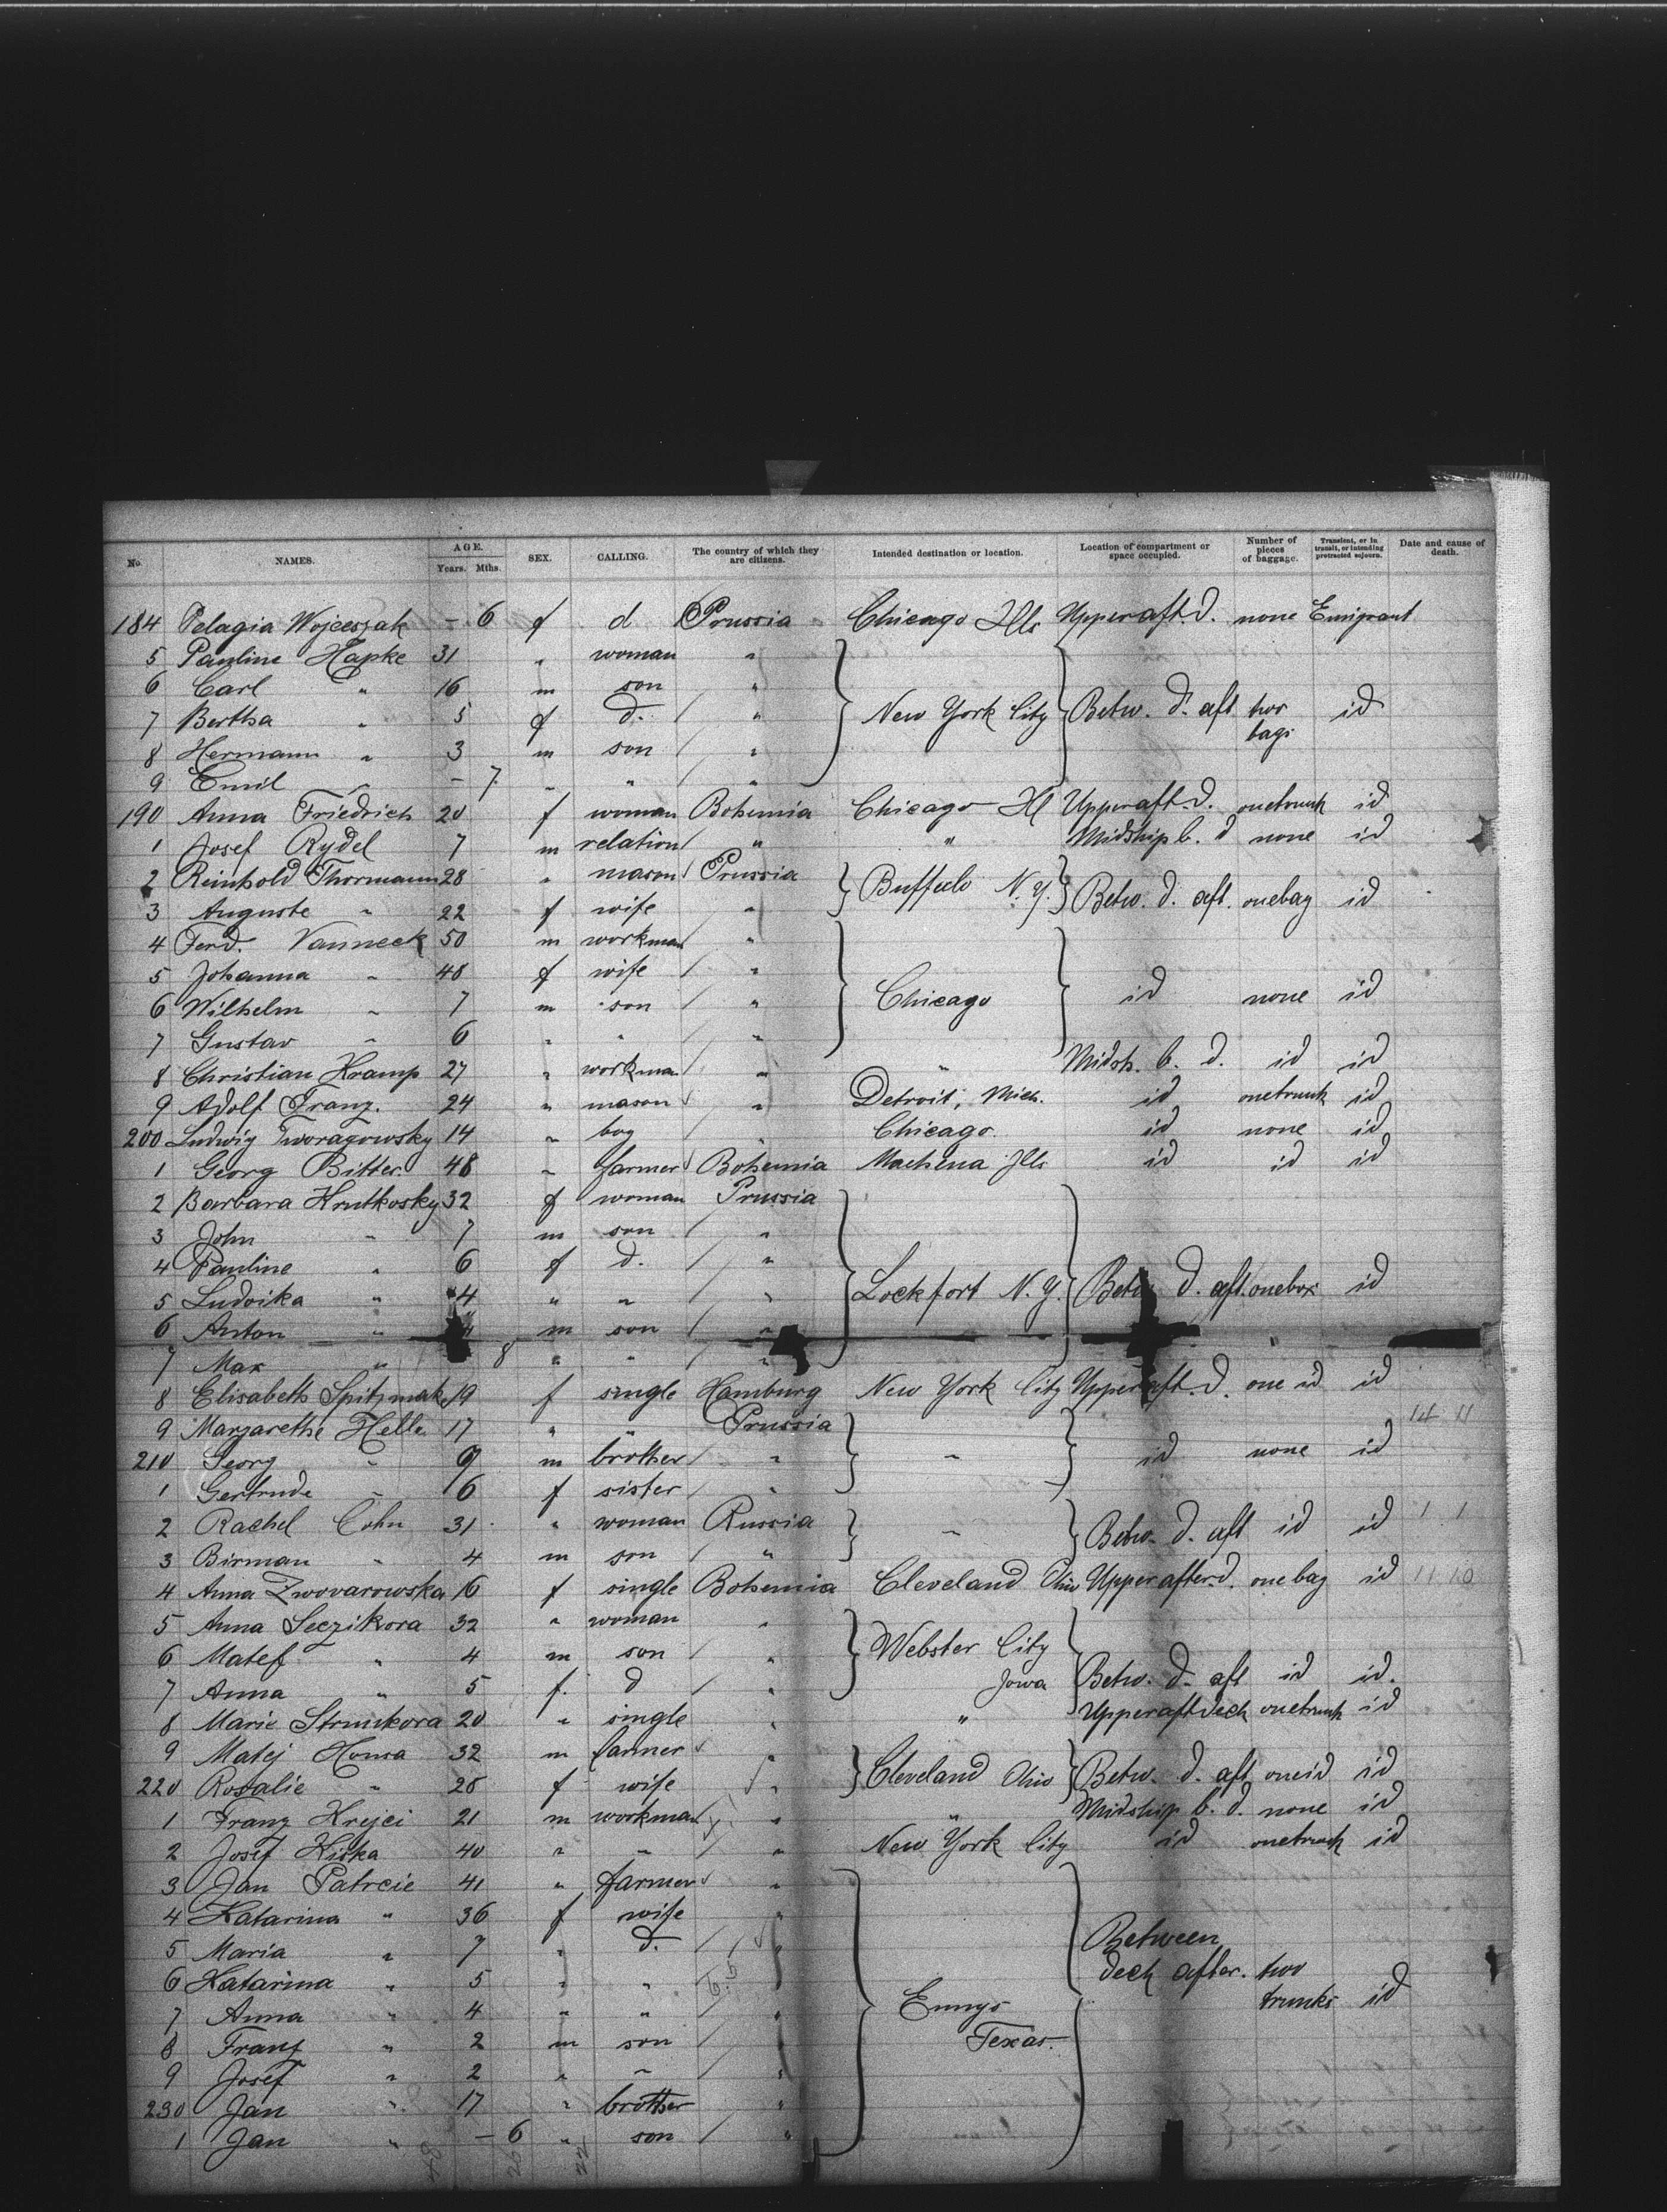 No. NAMES. AGE. Years. Mths. SEX. CALLING. The country of which they are citizens. Intended destination or location. Location of compartment or space occupied. Number of pieces of baggage. Transient, or in transit, or intending protracted sojourn. Date and cause of death.
184 Pelagia Wojceszak – 6 f d Prussia Chicago Ills Upper aft. d. none Emigrant
5 Pauline Hapke 31 " woman "
6 Carl " 16 m son "
7 Bertha " 5 f d. / " New York City Betw. d. aft two bags id
8 Hermann " 3 m son / "
9 Emil " – 7 " " / "
190 Anna Friedrich 20 f woman Bohemia Chicago Ill Upper aft. d. one trunk id
1 Josef Rydel 7 m relation / " " Midship b. d none id
2 Reinhold Thormann 28 " mason Prussia Buffalo N. Y. Betw. d. aft. one bag id
3 Auguste " 22 f wife "
4 Ferd. Vanneck 50 m workman "
5 Johanna " 48 f wife / "
6 Wilhelm " 7 m son / " Chicago id none id
7 Gustav " 6 " " / "
8 Christian Kramp 27 " workman " " Midsh. b. d. id id
9 Adolf Franz. 24 " mason " Detroit, Mich. id one trunk id
200 Ludwig Tworagowsky 14 " boy / " Chicago id none id
1 Georg Bitter 48 " farmer Bohemia Machina Ills id id id
2 Barbara Krutkosky 32 f woman Prussia
3 John " 7 m son / "
4 Pauline " 6 f d. / "
5 Ludvika " 4 " " / " Lockfort N. Y. Betw. d. aft. one box id
6 Anton " m son / "
7 Max " 8 " " / "
8 Elisabeth Spitzmak 19 f single Hamburg New York City Upper aft. d. one id id
9 Margarethe Helle 17 " " Prussia
210 Georg " 9 m brother / " " id none id
1 Gertrude " 6 f sister / "
2 Rachel Cohn 31 " woman Russia " Betw. d. aft id id
3 Birman " 4 m son / "
4 Anna Zwovarowska 16 f single Bohemia Cleveland Ohio Upper after d. one bag id 11 10
5 Anna Seczikora 32 " woman "
6 Matef " 4 m son / " Webster City Iowa
7 Anna " 5 f. d / " Betw. d. aft id id.
8 Marie Strunkora 20 " single " " Upper aft deck one trunk id
9 Matej Homa 32 m farmer "
220 Rosalie " 28 f wife " Cleveland Ohio Betw. d. aft one id id
1 Franz Krejci 21 m workman " " Midship b. d. none id
2 Josef Kiska 40 " " / " New York City id one trunk id
3 Jan Patrcie 41 " farmer "
4 Katarina " 36 f wife "
5 Maria " 7 " d. / "
6 Katarina " 5 " " "
7 Anna " 4 " " / " Ennys Texas. Between deck after. two trunks id
8 Franz " 2 m son / "
9 Josef " 2 " " / "
230 Jan " 17 " brother "
1 Jan " – 6 " son / "